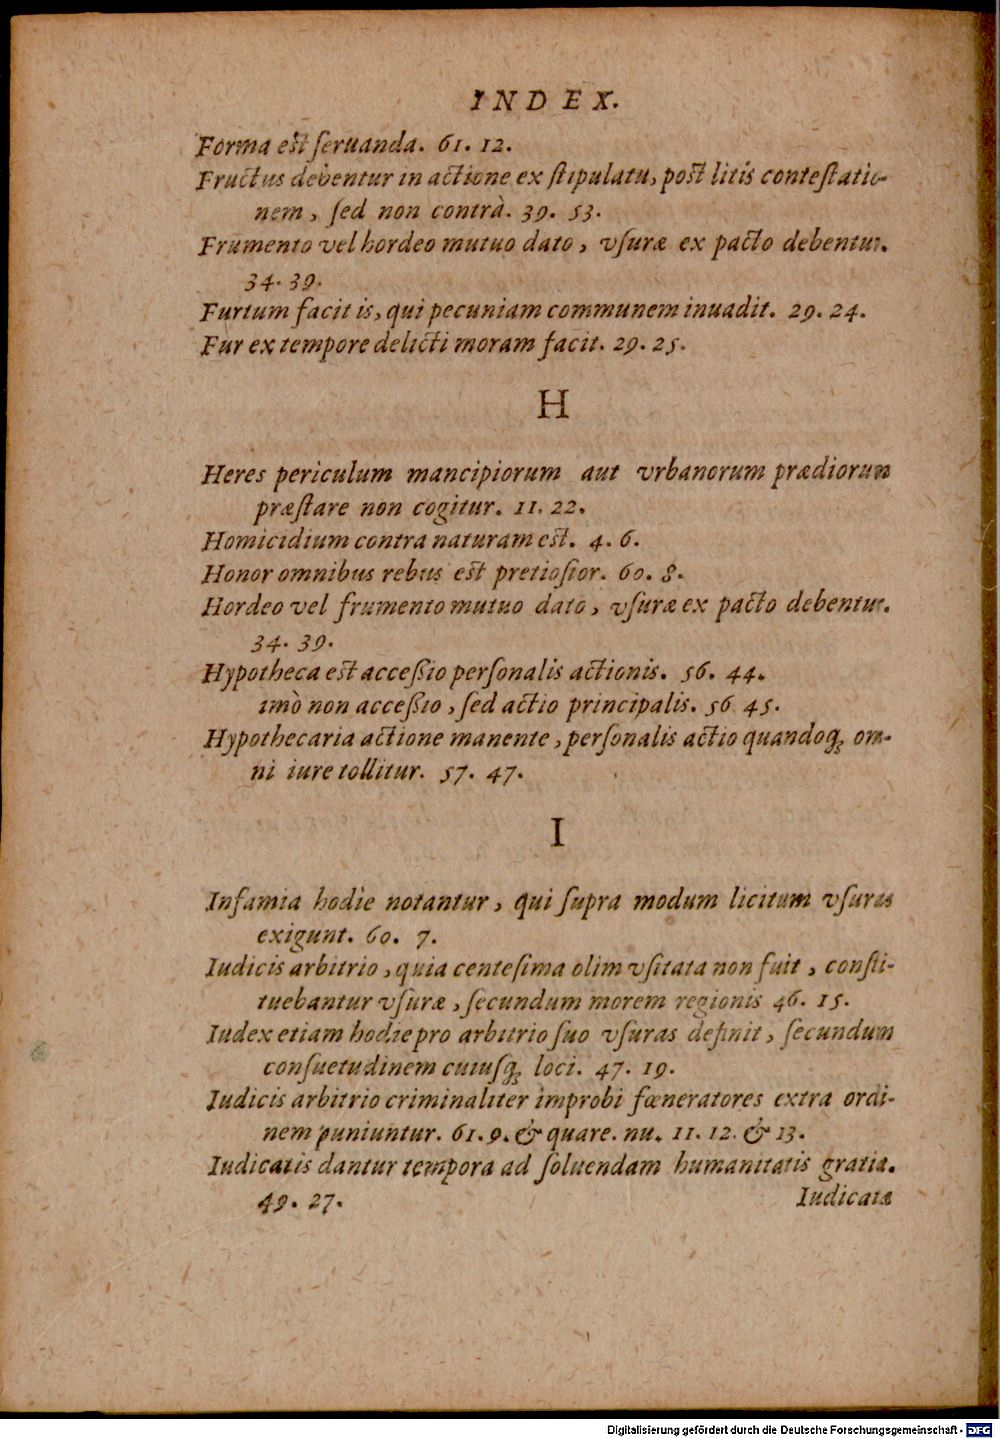 INDEX.
Forma est ſeruanda. 61. 12.
Fructus debentur in actione ex ſtipulatu, post litis conteſtatio-
nem, ſed non contrà. 39. 53.
Frumento vel hordeo mutuo dato, vſuræ ex pacto debentur.
34. 39.
Furtum facit is, qui pecuniam communem inuadit. 29. 24.
Fur ex tempore delicti moram facit. 29. 25.
H
Heres periculum mancipiorum aut vrbanorum prædiorum
præſtare non cogitur. 11. 22.
Homicidium contra naturam est. 4. 6.
Honor omnibus rebus est pretioſior. 60. 8.
Hordeo vel frumento mutuo dato, vſuræ ex pacto debentur.
34. 39.
Hypotheca est acceßio perſonalis actionis. 56. 44.
imò non acceßio, ſed actio principalis. 56 45.
Hypothecaria actione manente, perſonalis actio quandoq; om-
ni iure tollitur. 57. 47.
I
Infamia hodie notantur, qui ſupra modum licitum vſuras
exigunt. 60. 7.
Iudicis arbitrio, quia centeſima olim vſitata non fuit, conſti-
tuebantur vſuræ, ſecundum morem regionis 46. 15.
Iudex etiam hodie pro arbitrio ſuo vſuras definit, ſecundum
conſuetudinem cuiuſq; loci. 47. 19.
Iudicis arbitrio criminaliter improbi fœneratores extra ordi-
nem puniuntur. 61. 9. & quare. nu. 11. 12. & 13.
Iudicatis dantur tempora ad ſoluendam humanitatis gratia.
49. 27. Iudicatæ
Digitalisierung gefördert durch die Deutsche Forschungsgemeinschaft - DFG